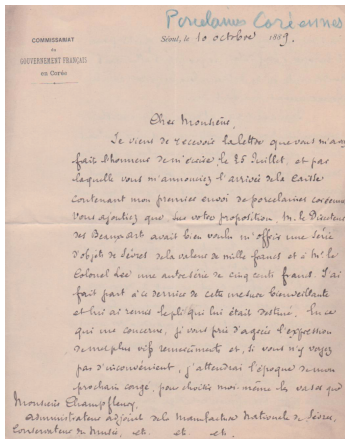 Porcelaines Coréennes
COMMISSARIAT
du
GOUVERNEMENT FRANÇAIS
en Corée
Séoul, le 10 octobre 1889.
Cher Monsieur,
Je viens de recevoir la lettre que vous m'avez
fait l'honneur de m'écrire le 25 Juillet, et par
laquelle vous m'annonciez l'arrivée de la caisse
contenant mon premier envoi de porcelaines coréennes
Vous ajoutiez que, sur votre proposition, Mr. le Directeur
des Beaux-Arts avait bien voulu m'offrir une série
d'objets de Sèvres de la valeur de mille francs et à Mr. le
Colonel Lee une autre série de cinq cents francs. J'ai
fait part à ce dernier de cette mesure bienveillante
et lui ai remis le pli qui lui était destiné. En ce
qui me concerne, je vous prie d'agréer l'expression
de mes plus vifs remerciements et, si vous n'y voyez
pas d'inconvénient, j'attendrai l'époque de mon
prochain congé, pour choisir moi-même les vases que
Monsieur Champfleury,
administrateur adjoint de la Manufacture Nationale de Sèvres,
Conservateur du Musée, etc. etc. etc.